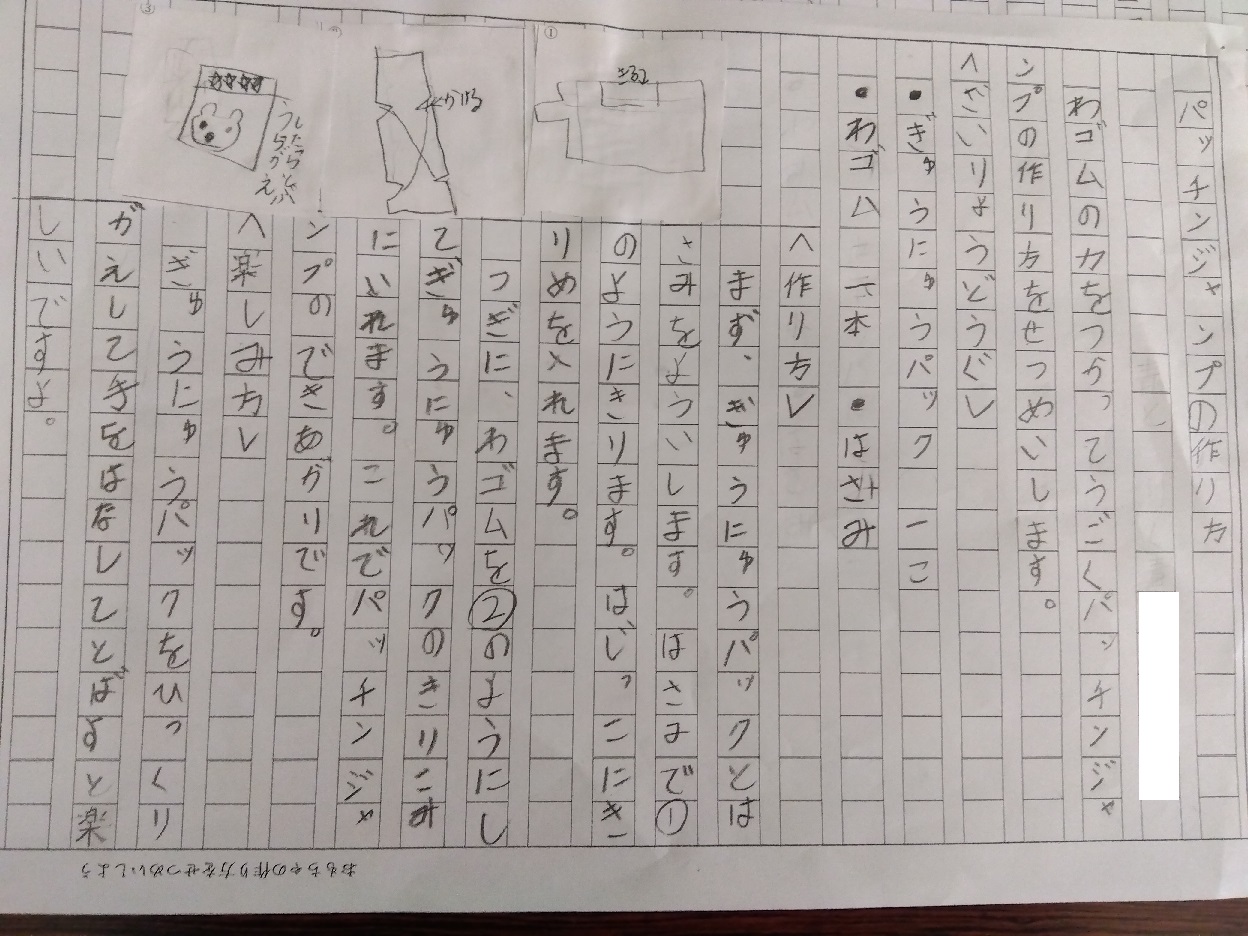 パッチンジャンプの作りカ
わゴムのカをつかってうごくパッチンジャ
ンプの作り方をせつめいします。
〈ざいりょうどうぐ〉
●ぎゅうにゅうパック一こ
●わゴム一本 ●はさみ
〈作り方〉
まず、ぎゅうにゅうパックとは
さみをよういします。はさみで①
のようにきります。はじっこにき
りめを入れます。
つぎに、わゴムを②のようにし
てぎゅうにゅうパックのきりこみ
にいれます。これでパッチンジャ
ンプのできあがりです。
〈楽しみ方〉
ぎゅうにゅうパックをひっくり
がえして手をはなしてとばすと楽
しいですよ。
①
きる2
かける
③
うらがえ
おもちゃの作り方をせつめいしよう